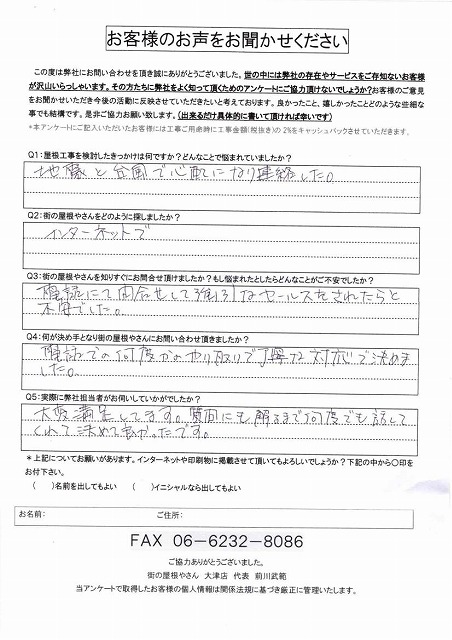 お客様のお声をお聞かせください
この度は弊社にお問い合わせを頂き誠にありがとうございました。世の中には弊社の存在やサービスをご存知ないお客様
が沢山いらっしゃいます。その方たちに弊社をよく知って頂くためのアンケートにご協力頂けないでしょうか?お客様のご意見
をお聞かせいただき今後の活動に反映させていただきたいと考えております。良かったこと、嬉しかったことどのような些細な
事でも結構です。是非ご協力お願い致します。(出来るだけ具体的に書いて頂ければ幸いです)
*本アンケートにご記入いただいたお客様には工事ご用命時に工事金額(税抜き)の2%をキャッシュバックさせていただきます。
Q1:屋根工事を検討したきっかけは何ですか?どんなことで悩まれていましたか?
地震と台風で心配になり連絡した。
Q2:街の屋根やさんをどのように探しましたか?
インターネットで
Q3:街の屋根やさんを知りすぐにお問合せ頂けましたか?もし悩まれたとしたらどんなことがご不安でしたか?
電話にて問合せして強引なセールスをされたらと
不安でした。
Q4:何が決め手となり街の屋根やさんにお問い合わせ頂きましたか?
電話での何度かのやり取りで丁寧な対応で決めま
した。
Q5:実際に弊社担当者がお伺いしていかがでしたか?
大変満足してます。質問にも解るまで何度でも話して
くれて決めて良かったです。
*上記についてお願いがあります。インターネットや印刷物に掲載させて頂いてもよろしいでしょうか?下記の中から〇印を
お付下さい。
( )名前を出してもよい ( )イニシャルなら出してもよい
お名前: ご住所:
FAX 06-6232-8086
ご協力ありがとうございました。
街の屋根やさん 大津店 代表 前川武範
当アンケートで取得したお客様の個人情報は関係法規に基づき厳正に管理いたします。